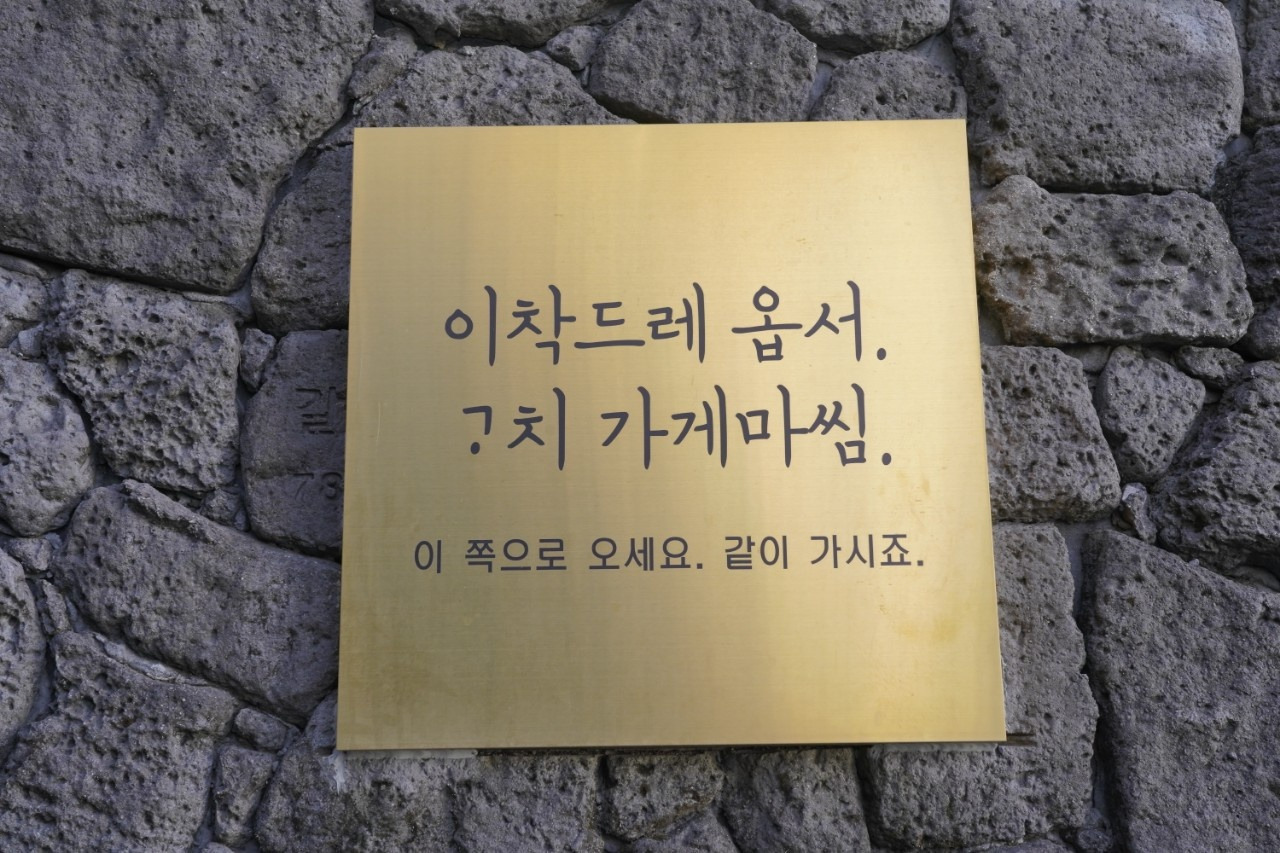 이착드레 옵서.
ᄀᆞ치 가게마씸.
이 쪽으로 오세요. 같이 가시죠.